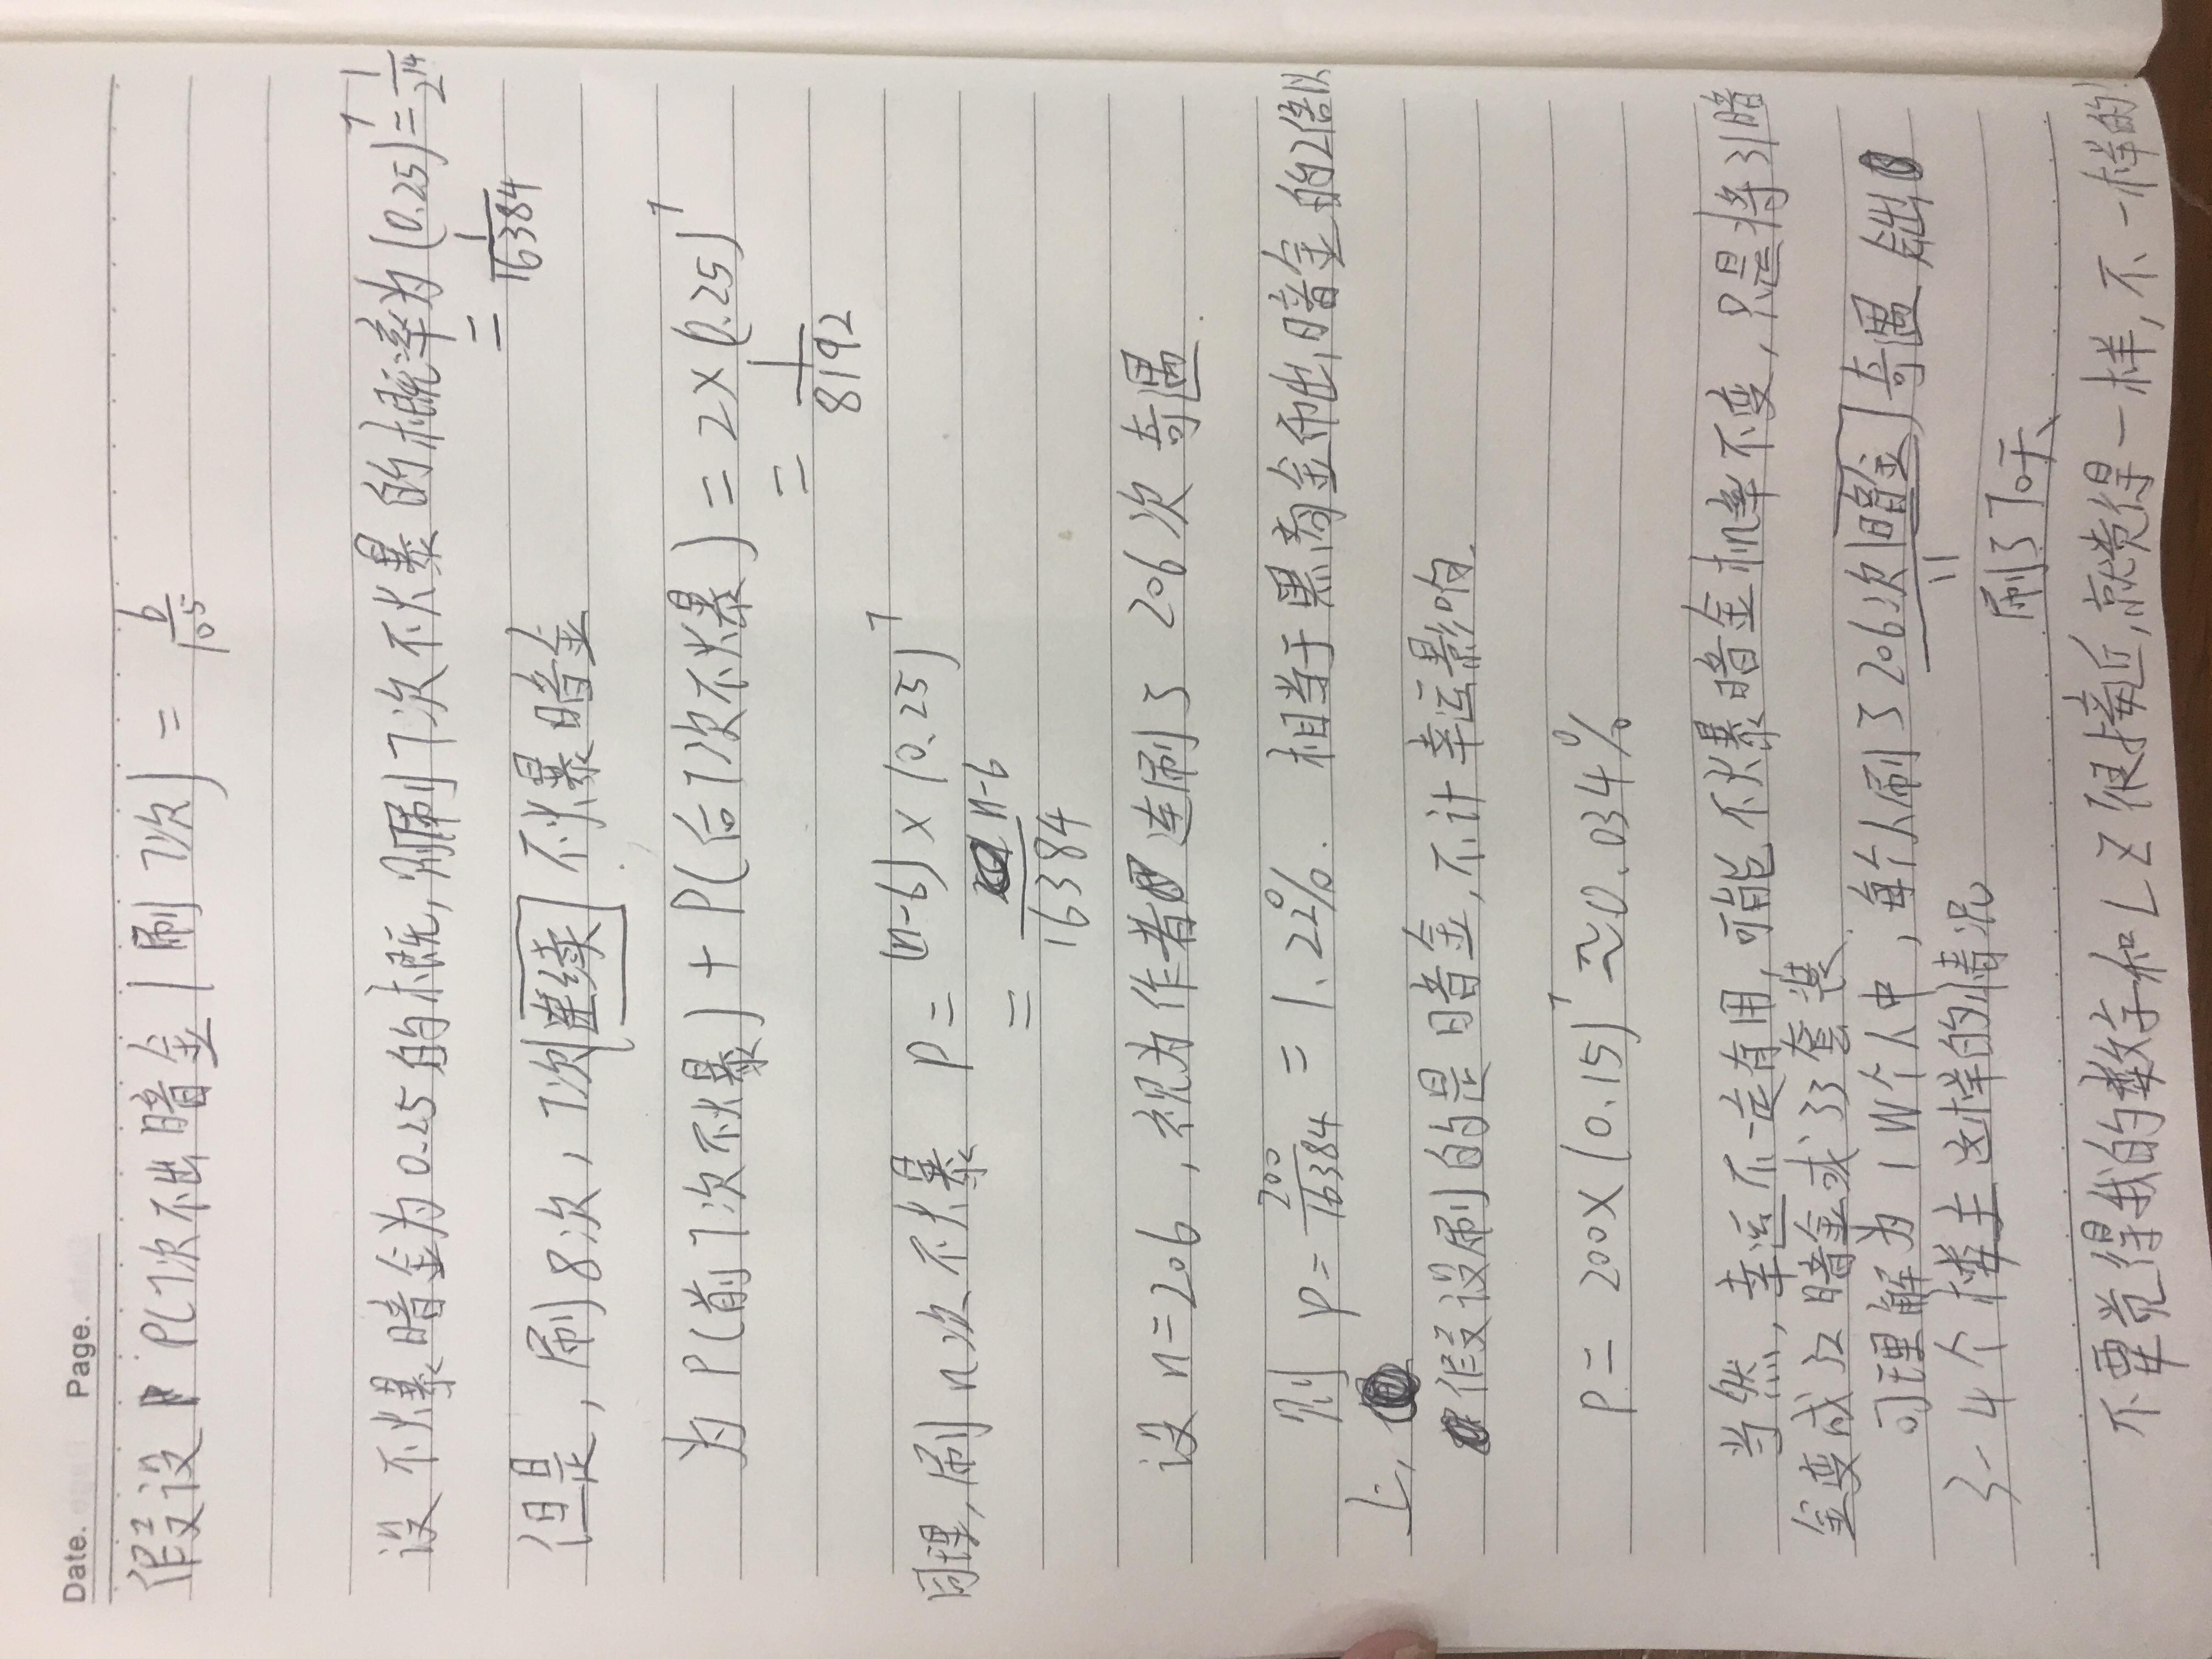 Date. Page.
假设 P(7次不出暗金|刷7次) = 6/10^5
设不爆暗金为0.25的概,刷7次不爆的概率为(0.25)^7=1/2^14
= 1/16384
但是,刷8次,7次连续不爆暗金
为P(前7次不爆)+P(后7次不爆)=2×(0.25)^7
= 1/8192
同理,刷n次不爆 P=(n-6)×(0.25)^7
= n-6/16384
设n=206,视为作者连刷了206次奇遇.
则 P=200/16384 = 1.22%. 相当于黑商金币出暗金的2倍以
上,
假设刷的是暗金,不计幸运影响.
P=200×(0.15)^7≈0.034%
当然,幸运不一定有用,可能不爆暗金机率不变,只是将31暗
金变成52暗金或33套装.
可理解为1W个人中,每个人刷了206次暗金奇遇
刷70天
3-4个楼主这样的情况
不要觉得我的数字和LZ很接近,就觉得一样,不一样的!